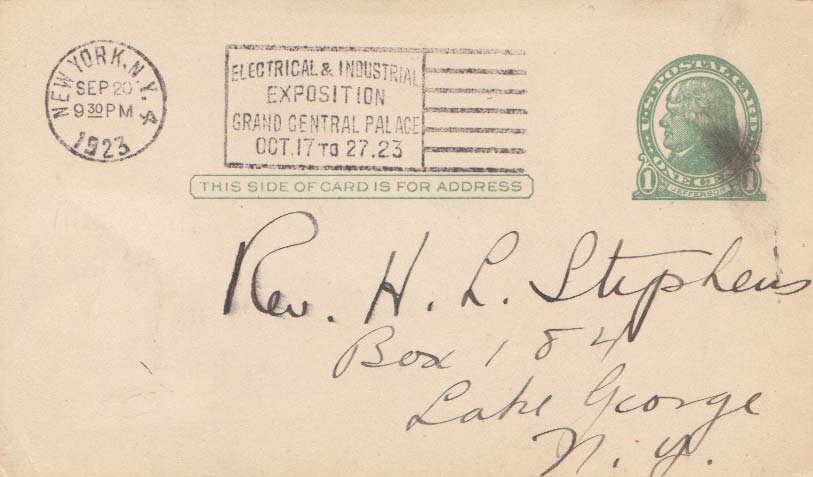 NEW YORK, N.Y. 4
SEP 20
9 30 PM
1923
ELECTRICAL & INDUSTRIAL
EXPOSITION
GRAND CENTRAL PALACE
OCT. 17 TO 27. 23
U.S. POSTAL CARD
1 ONE CENT 1
JEFFERSON
THIS SIDE OF CARD IS FOR ADDRESS
Rev. H. L. Stephens
Box 184
Lake George
N. Y.